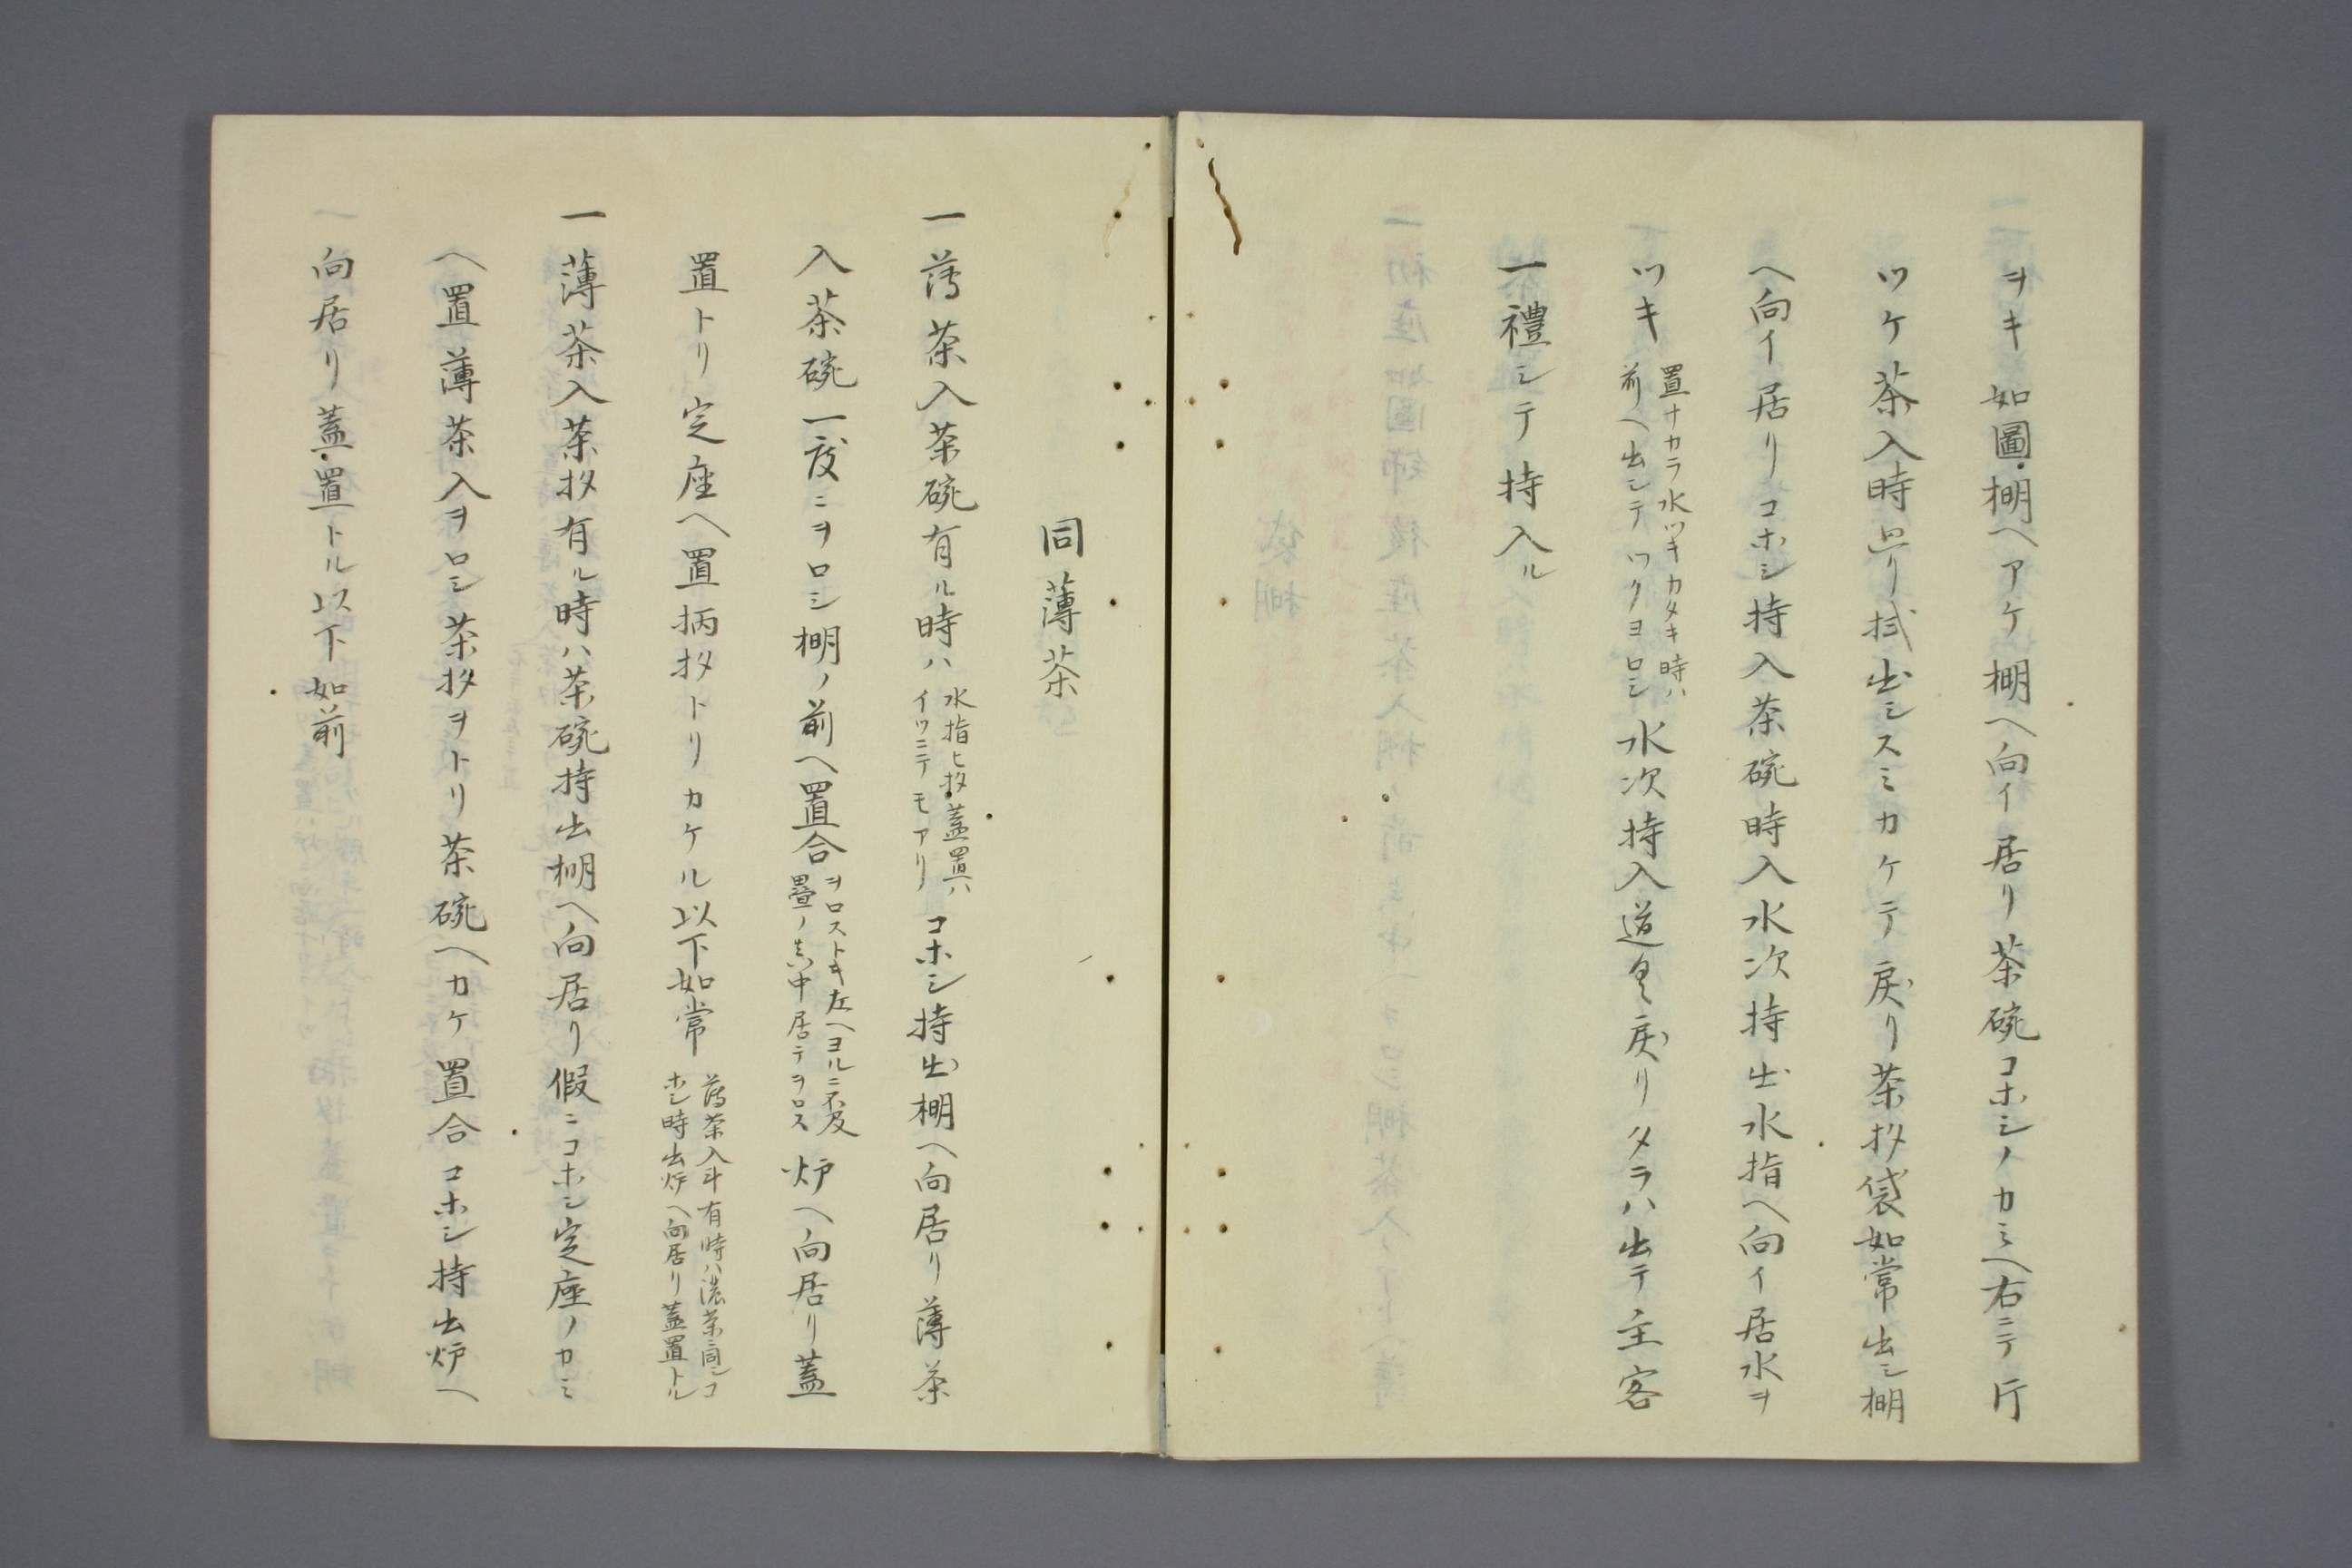 ヲキ 如圖棚ヘアケ 棚ヘ向イ居リ茶碗コホシノカミヘ右ニテ片
ツケ茶入時ヨリ拭出シスミカケテ戻リ茶杓袋如常出シ棚
ヘ向イ居リコホシ持入茶碗時入水次持出水指ヘ向イ居水ヲ
ツキ
置ナカラ水ツキカタキ時ハ
前ヘ出シテツクヨロシ
水次持入道具戻リタラハ出テ主客
一禮シテ持入ル
同薄茶
一薄茶入茶碗有ル時ハ
水指ヒ杓蓋置ハ
イツニテモアリ
コホシ持出棚ヘ向居リ薄茶
入茶碗一度ニヲロシ棚ノ前ヘ置合
ヲロストキ左ヘヨルニ不及
疊ノ真中居テヲロス
炉ヘ向居リ蓋
置トリ定座ヘ置柄杓トリカケル以下如常
薄茶入斗有時ハ濃茶ニ同シコ
ホシ時出炉ヘ向居リ蓋置トル
一薄茶入茶杓有ル時ハ茶碗持出棚ヘ向居リ假ニコホシ定座ノカミ
ヘ置薄茶入ヲロシ茶杓ヲトリ茶碗ヘカケ置合コホシ持出炉ヘ
向居リ蓋置トル以下如前